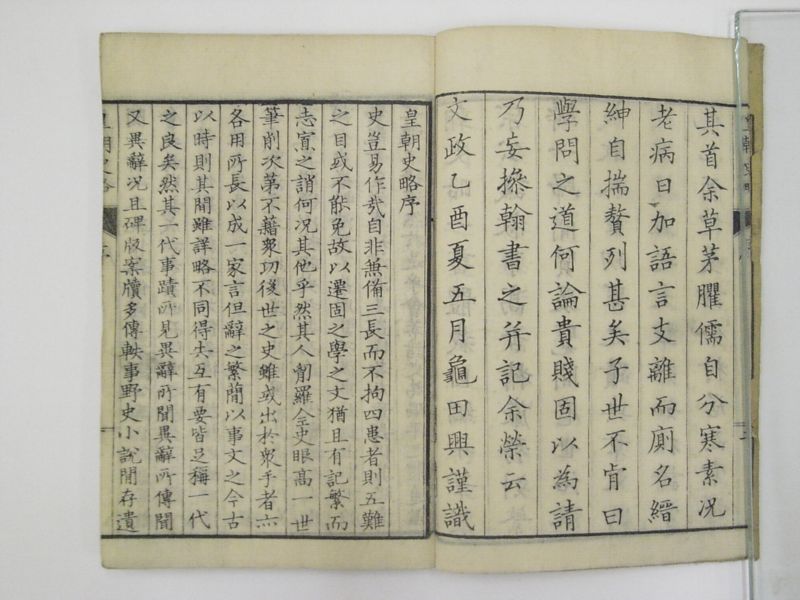 其首余草茅臞儒自分寒素況
老病日加語言支離而廁名縉
紳自揣贅列甚矣子世不肯曰
學問之道何論貴賤固以為請
乃妄摻翰書之并記余榮云
文政乙酉夏五月龜田興謹識
皇朝史略序
史豈易作哉自非無備三長而不拘四患者則五難
之目或不能免故以遷固之學之文猶且有記繁而
志寡之誚何況其他乎然其人罔羅全史眼高一世
筆削次第不藉衆功後世之史雖或出於衆手者亦
各用所長以成一家言但辭之繁簡以事文之今古
以時則其間雖詳略不同得失互有要皆足稱一代
之良矣然其一代事蹟所見異辭所聞異辭所傳聞
又異辭況且碑版案牘多傳軼事野史小說閒存遺